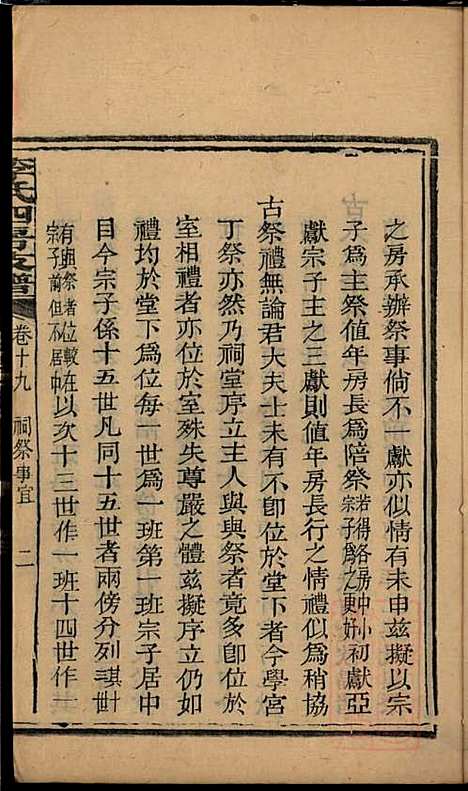 之房承辦祭事倘不一獻亦似情有未申茲擬以宗
子為主祭值年房長為陪祭若得各房中小宗子為之更好初獻亞
獻宗子主之三獻則值年房長行之情禮似為稍協
古祭禮無論君大夫士未有不卽位於堂下者今學宮
丁祭亦然乃祠堂序立主人與與祭者竟多卽位於
室相禮者亦位於室殊失尊嚴之體茲擬序立仍如
禮均於堂下為位每一世為一班第一班宗子居中
目今宗子係十五世凡同十五世者兩傍分列諆卄世
有與祭者位較在宗子前但不居中以次十三世作一班十四世作一
氏四房支譜
卷十九
祠祭事宜
二